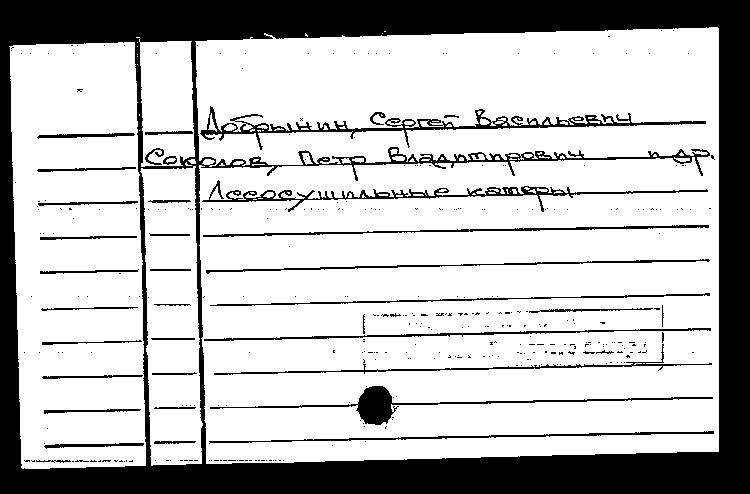 Добрынин, Сергей Васильевич
Соколов, Петр Владимирович и др.
Лесосушильные камеры